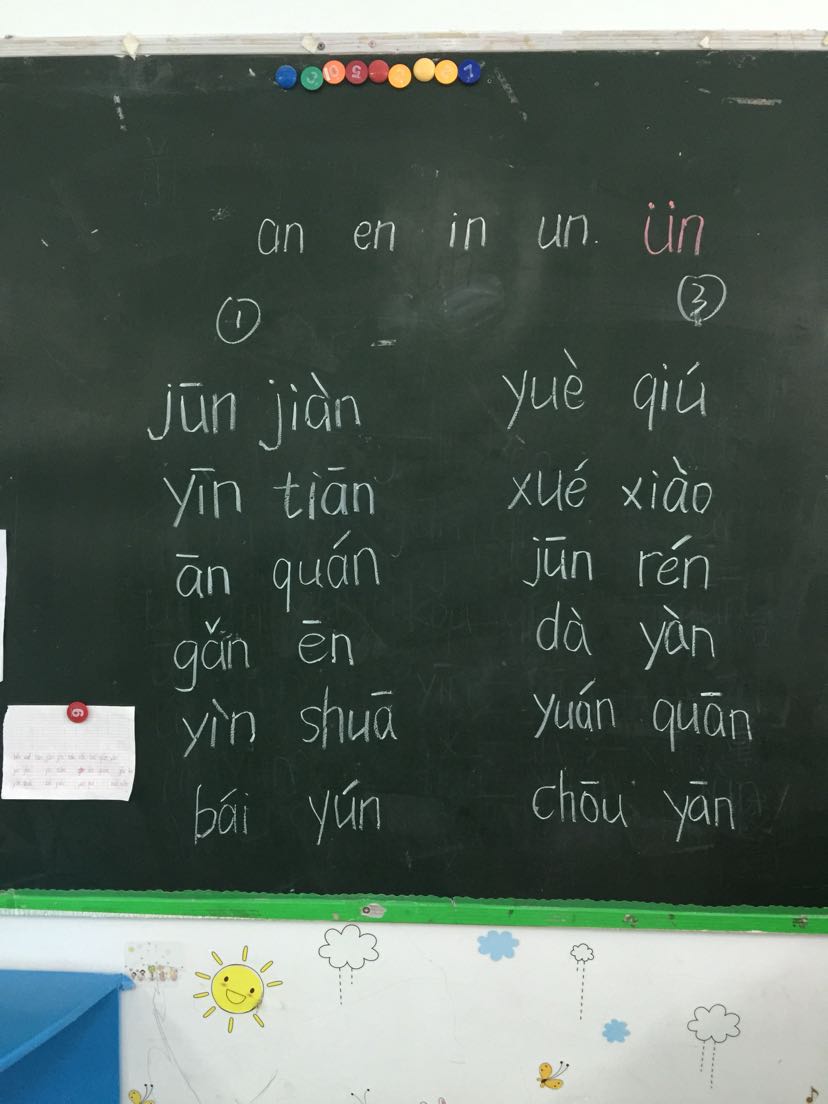 an en in un. ün
① ③
jūn jiàn yuè qiú
yīn tiān xué xiào
ān quán jūn rén
gǎn ēn dà yàn
yìn shuā yuán quān
bái yún chōu yān